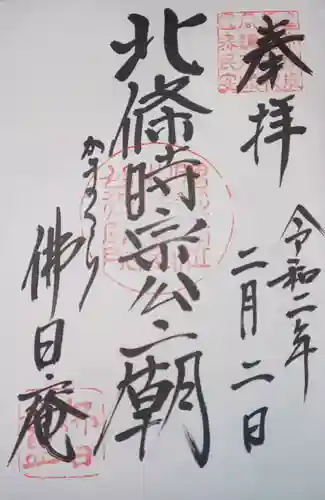 奉拝
令和二年
二月二日
北條時宗公之廟
かまくら
佛日庵